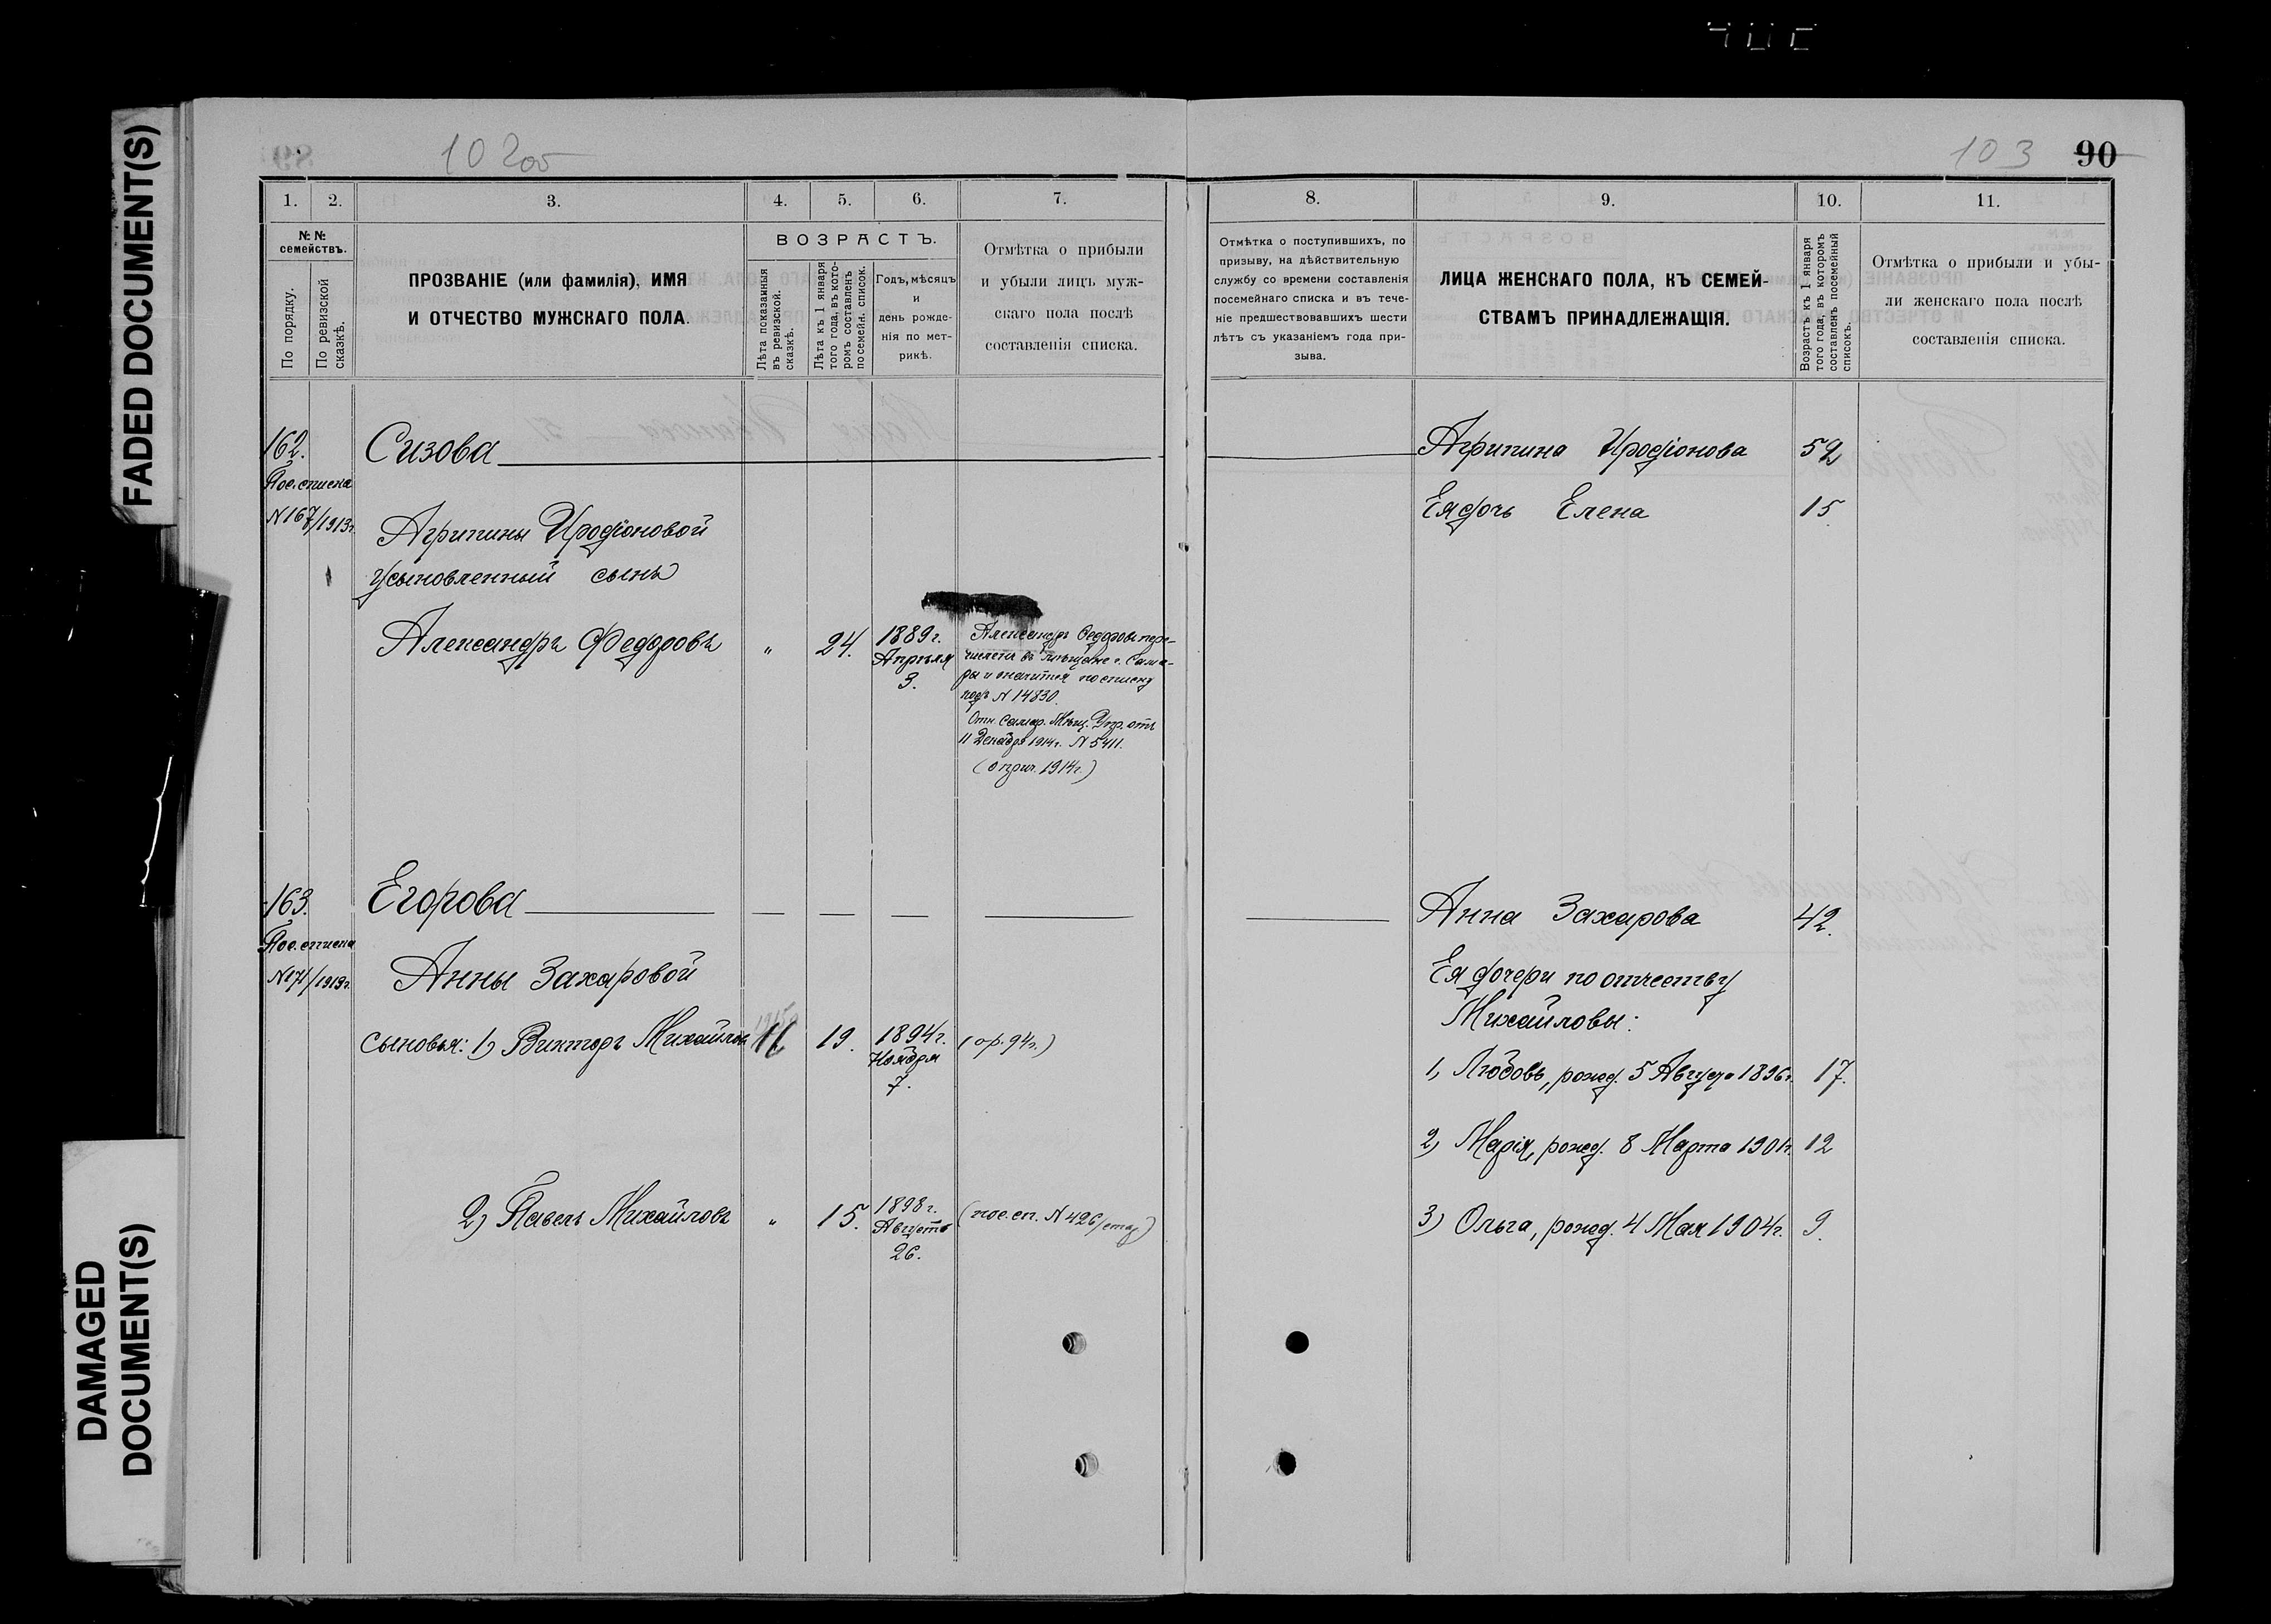 FADED DOCUMENT(S)
DAMAGED
DOCUMENT(S)
102об
1. 2. 3. 4. 5. 6. 7.
№ №
семействъ.
По порядку.
По ревизской
сказкѣ.
ПРОЗВАНІЕ (или фамилія), ИМЯ
И ОТЧЕСТВО МУЖСКАГО ПОЛА.
ВОЗРАСТЪ.
Лѣта показанныя
въ ревизской.
сказкѣ.
Лѣта къ 1 января
того года, въ кото-
ромъ составленъ
посемейн. список.
Годъ, мѣсяцъ
и
день рожде-
нія по мет-
рикѣ.
Отмѣтка о прибыли
и убыли лицъ муж-
скаго пола послѣ
составленія списка.
162. Сизова
Пос. списка
N 167/1913г.
Агрипины Иродіоновой
усыновленный сынъ
Александръ Федоровъ „ 24. 1889 г.
Апрѣля
3.
Александръ Федоровъ пере-
численъ въ мѣщане г. Сама-
ры и значится по списку
подъ N 14830.
Отн. Самар. Мѣщ. Упр. отъ
11 Декабря 1914 г. N 5411.
1914 г.)
163. Егорова
Пос. списка
N171/1913г.
Анны Захаровой
сыновья: 1) Викторъ Михайловъ 19. 1894 г.
Ноября
7.
94г.)
2) Павелъ Михайловъ „ 15. 1898 г.
Августъ
26.
(пос. сп. N 426/
103 90
8. 9. 10. 11.
Отмѣтка о поступившихъ, по
призыву, на дѣйствительную
службу со времени составленія
посемейнаго списка и въ тече-
ніе предшествовавшихъ шести
лѣтъ съ указаніемъ года при-
зыва.
ЛИЦА ЖЕНСКАГО ПОЛА, КЪ СЕМЕЙ-
СТВАМЪ ПРИНАДЛЕЖАЩІЯ.
Возрастъ къ 1 января
того года, въ которомъ
составленъ посемейный
списокъ.
Отмѣтка о прибыли и убы-
ли женскаго пола послѣ
составленія списка.
Агрипина Иродіонова 52
Ея дочь Елена 15
Анна Захарова 42.
Ея дочери по отчеству
Михайловы:
1) Любовь, рожд. 5 Августа 1896 г. 17.
2) Марія, рожд. 8 Марта 1901 г. 12
3) Ольга, рожд. 4 Мая 1904 г. 9.